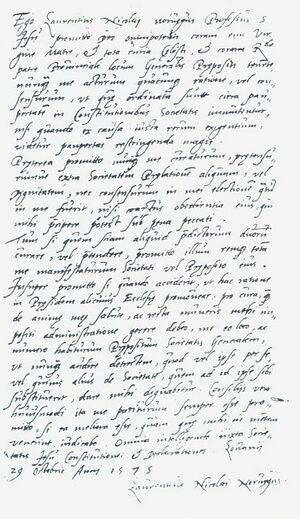 Ego Laurentius Nicolai norvegus Professus S
Jesu promitto Deo omnipotenti coram eius Vir
gine Matre, et tota curia Cælesti, et coram R
patre Provinciale locum Generalis Præpositi tenente
nunquam me acturum quacunque ratione, vel con
sensurum, ut quæ ordinata sunt circa pau
pertatem in Constitutionibus Societatis immutentur,
nisi quando ex causa iusta rerum exigentium,
videretur paupertas restringenda magis.
Præterea promitto nunquam me curaturum, prætensu
rumve extra Societatem Prælationem aliquam, vel
dignitatem, nec consensurum in mei electionem quantum
in me fuerit, nisi coactum obedientia eius qui
mihi præcipere potest sub pœna peccati.
Tum si quem sciam aliquid prædictorum duorum
curare, vel prætendere, promitto illum remque totam
me manifestaturum Societati vel Præposito eius.
Insuper promitto si quando acciderit, ut hac ratione
in Præsidem alicuius Ecclesiæ promovear, pro cura quam
de animæ meæ salute, ac recta muneris mihi im
positi administratione gerere debeo, me eo loco, ac
numero habiturum Præpositum Societatis Generalem,
ut nunquam audire detrectem, quod vel ipse per se,
vel quivis alius de Societate, quem ad id ipse sibi
substituerit, dare mihi dignabitur. Consiliis vero
huiusmodi ita me pariturum semper esse pro
mitto, si ea meliora esse, quam quæ mihi in mentem
venerint, iudicabo. Omnia intelligendo iuxta Socie
tatis Jesu Constitutiones et Declarationes. Lovanii
29 Octobris Anno 1575
Laurentius Nicolai Norvegus.